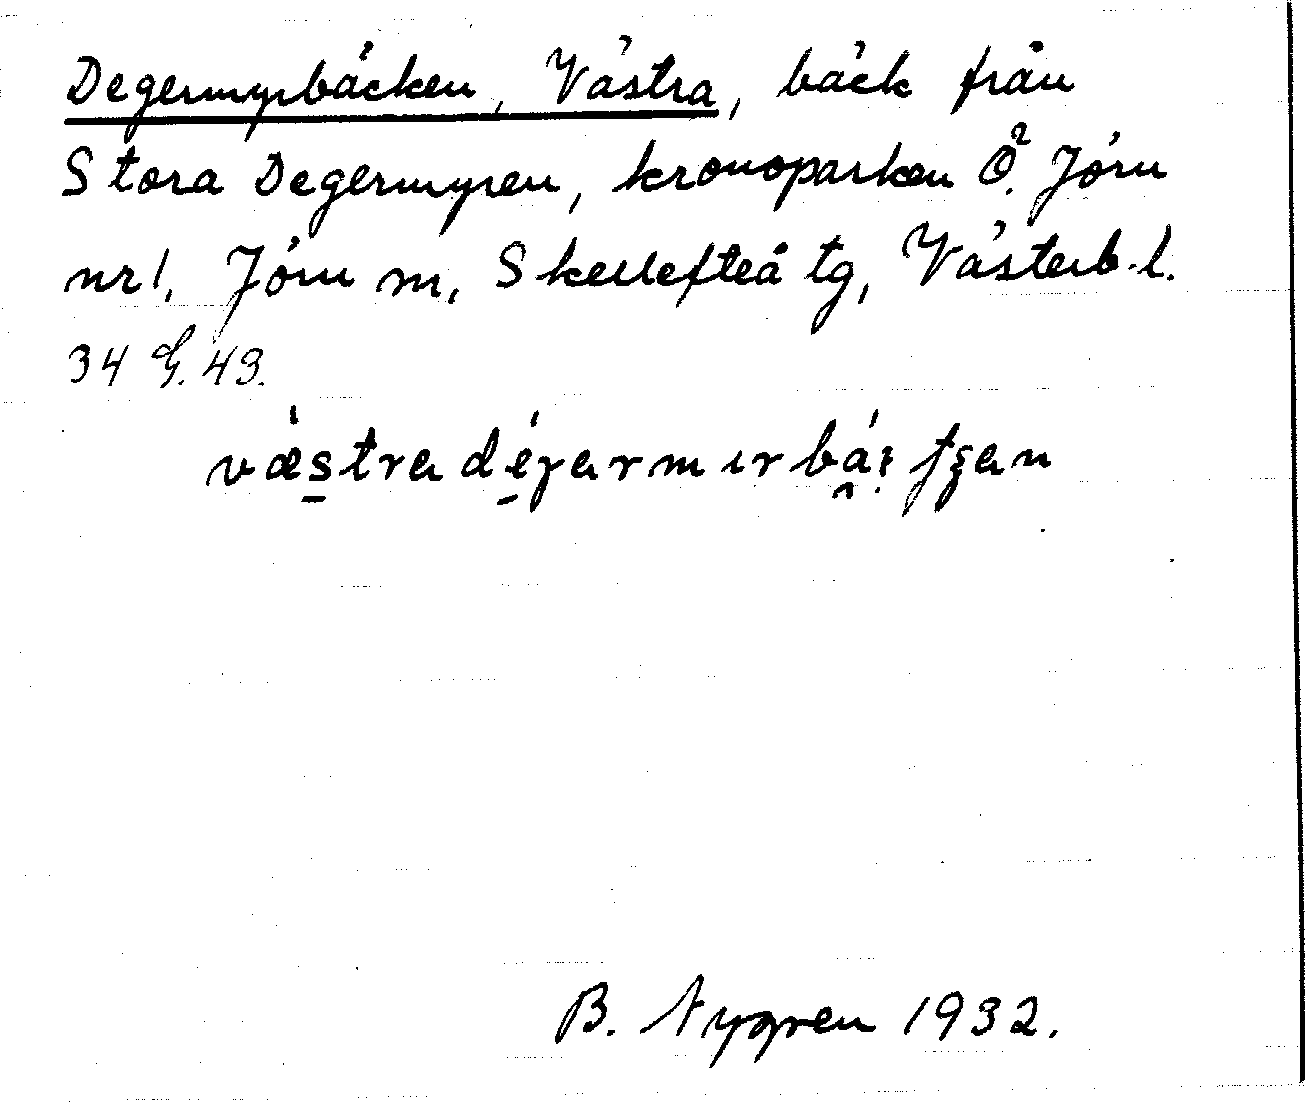 Degermyrbäcken, Västra, bäck från
Stora Degermyren, kronoparken Ö. Jörn
nr 1, Jörn m, Skellefteå tg, Västerb. l.
34 G. 43.
västra
B. Nygren 1932.